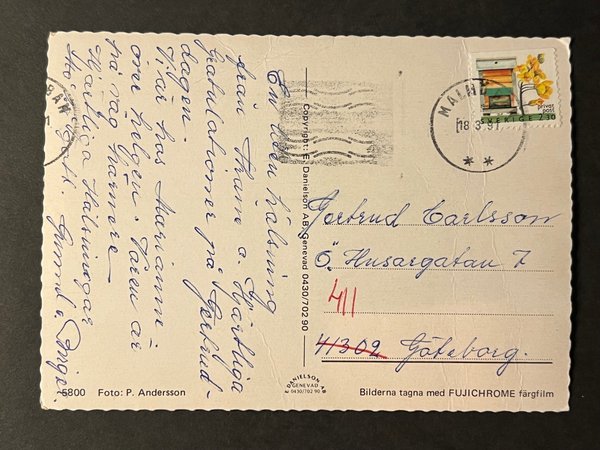 En liten hälsning
från Tham o. Hjärtliga
Gratulationer på Gertrud-
dagen.
Vi är hos Marianne
över helgen. Våren är
på väg härnere
Hjärtliga Hälsningar
Gunnel o. Birger
Copyright: E. Danielson AB, Genevad 0430/702 90
MALMÖ
18.3.91
privat
post
SVERIGE 2.30
Gertrud Carlsson
Ö. Husargatan 7
411
41302 Göteborg.
5800 Foto: P. Andersson
DANIELSON AB
GENEVAD
0430/702 90
Bilderna tagna med FUJICHROME färgfilm